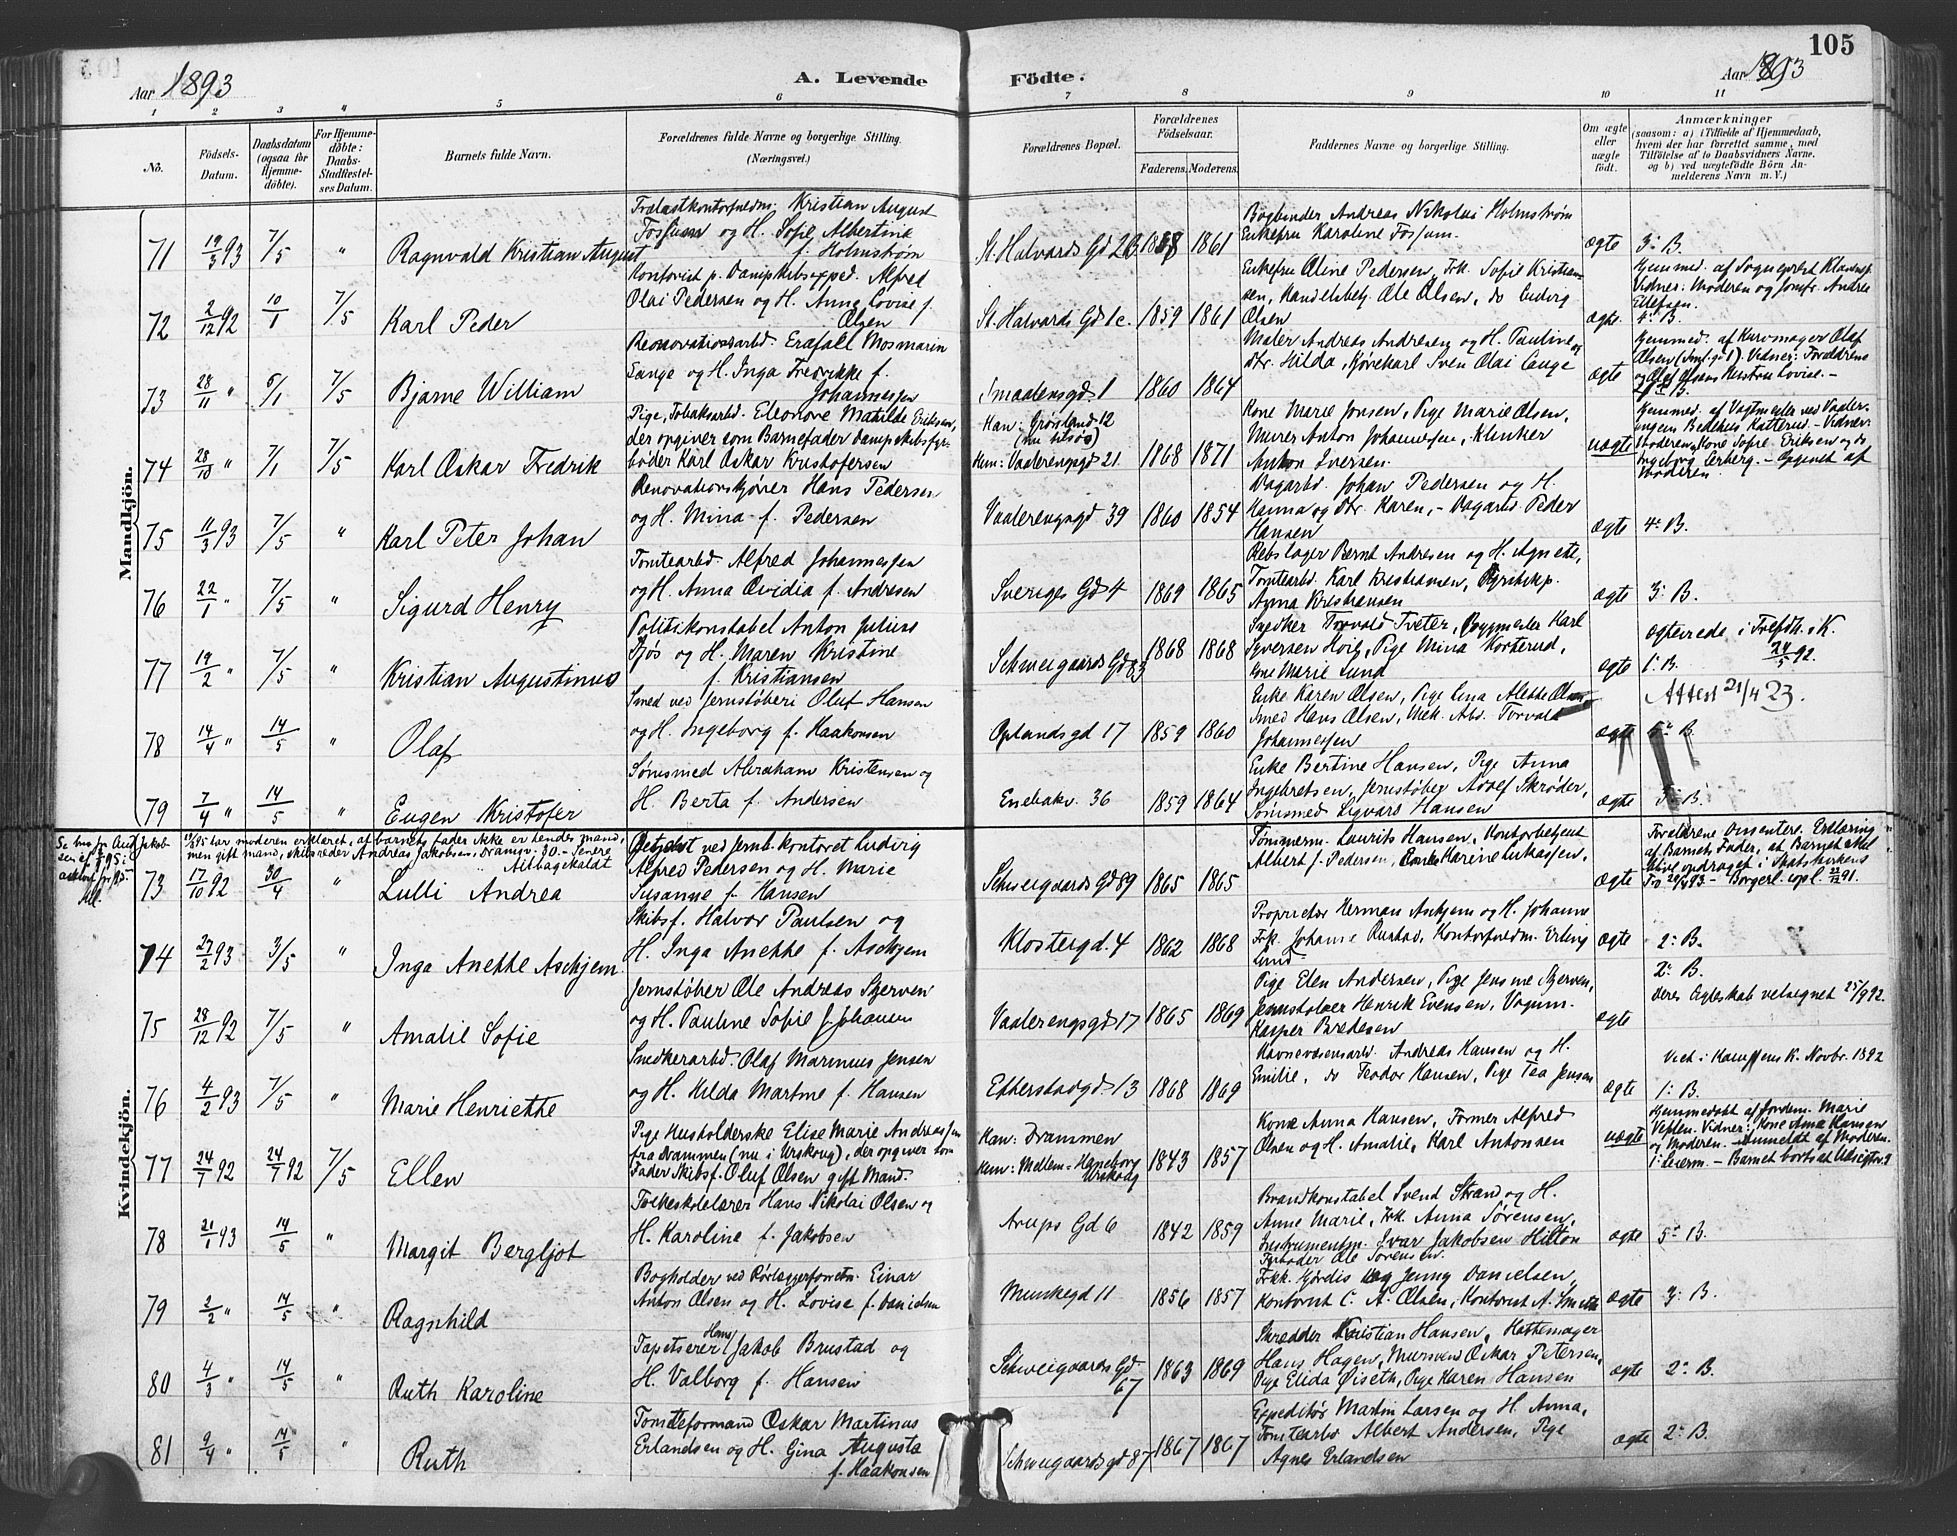 105
Aar 1893
A. Levende
Födte.
Aar 1893
1 2 3 " 5 6 7 8 9 10 11
No.
Födsels-Datum.
Daabsdatum (ogsaa för Hjemme-döbte).
For Hjemme-döbte: Daabs-Stadfæstel-ses Datum.
Barnets fulde Navn.
Forældrenes fulde Navne og borgerlige Stilling.
(Næringsvei.)
Forældrenes Bopæl.
Forældrenes Födselsaar.
Faderens. Moderens.
Faddernes Navne og borgerlige Stilling.
Om ægte eller uægte födt.
Anmærkninger
(saasom: a) i Tilfælde af Hjemmedaab,
hvem der har forrettet samme, med
Tilföielse af to Daabsvidners Navne.
og b) ved uægtefödte Börn An-
melderens Navn m. V.)
Mandkjön.
71 19/3 93 7/5 " Ragnvald Kristian August
Trælastkontorfuldm. Kristian August
Fossum og H. Sofie Albertine
f. Holmstrøm
St. Halvards Gd 1861
Bogbinder Andreas Nikolai Holmstrøm
Enkefru Karoline Fossum.
ægte 3: B.
72 2/12 92 10/1 7/5 Karl Peder
Kontorist p. Dampskibsexped. Alfred
Olai Pedersen og H. Anna Lovise f.
Olsen
St. Halvards Gd 1c. 1859 1861
Enkefru Oline Pedersen, Frk. Sofie Kristian-
sen, Handelsbetj. Ole Olsen, do Ludvig
Olsen
ægte.
Hjemmed. af Sogneprest
Vidner: Moderen og Jomfr. Andrea
Ellefsen.
4: B.
73 28/11 " 6/1 7/5 Bjarne William
Renovationsarbd. Mosmarin
Lange og H. Inga Fredrikke f.
Johannessen
Smaalensgd 1 1860 1864
Maler Andreas Andresen og H. Pauline og
dtr. Hilda, Kjørekarl Sven Olai Lange
ægte
Hjemmed. af Kurvmager Olaf
Olsen Vidner: Forældrene
og Olaf Olsens Hustru Lovise. –
74 28/10 " 7/1 7/5 Karl Oskar Fredrik
Pige, Tobaksarbd. Eleonore Matilde Eriksen,
der opgiver som Barnefader Dampskibsfyr-
bøder Karl Oskar Kristofersen
Han: Grønland 12
(nu tilsøs)
Hun: Vaalerengsgd 21. 1868 1871
Kone Marie Jonsen, Pige Marie Olsen,
Murer Anton Johannessen, Klinker
Anton Iversen.
uægte
Hjemmed. af Vagtmester ved Vaaler-
engens Bedehus Vidner:
Moderen, Kone Sofie Eriksen og do
Ingeborg – Opgivet af
Moderen
75 11/3 93 7/5 " Karl Peter Johan
Renovationskjører Hans Pedersen
og H. Mina f. Pedersen
Vaalerengsgd 39 1860 1854
Dagarbd. Johan Pedersen og H.
Hanna og dtr. Karen, – Dagarbd Peder
Hansen
ægte 4: B.
76 22/1 " 7/5 " Sigurd Henry
Tomtearbd. Alfred Johannessen
og H. Anna Ovidia f. Andresen
Sveriges Gd 4 1869 1865
Rebslager Bernt Andresen og H. Agnete,
Tomtearbd. Karl Kristiansen,
Anna Kristiansen
ægte 3: B.
77 19/2 " 7/5 " Kristian Augustinus
Politikonstabel Anton Julius
og H. Maren Kristine
f. Kristiansen
Schweigaards Gd 83 1868 1868
Snedker Torvald Tveter, Bygmester Karl
Syversen Pige Mina
Kone Marie Lund
ægte
ægteviede i Trefdh. K.
24/5 92.
1: B.
78 14/4 " 14/5 " Olaf
Smed ved Jernstøberi Oluf Hansen
og H. Ingeborg f. Haakonsen
Oplandsgd 17 1859 1860
Enke Karen Olsen, Pige Lina Alette Olsen,
Smed Hans Olsen, Mek. Arb. Torvald
Johannessen
ægte
Attest 21/4 23.
5: B.
79 7/4 " 14/5 " Eugen Kristofer
Abraham Kristensen og
H. Berta f. Andersen
Enebakv. 36 1859 1864
Enke Bertine Hansen, Pige Anna
Ingebretsen, Jernstøber Adolf Skrøder,
Sigvard Hansen
ægte B.
Kvindekjön.
har moderen erklæret, at barnets fader ikke er hendes mand,
men gift mand, skibsreder Andreas Jakobsen, Dramsv. 30. – Senere
tilbagekaldt
73 17/10 92 30/4 " Lulli Andrea
ved Jernb. kontoret Ludvig
Alfred Pedersen og H. Marie
Susanne f. Hansen
Schweigaards Gd 89 1865 1865
Tømmerm. Laurits Hansen, Kontorbetjent
Albert J. Pedersen, Karine Lukassen,
ægte
Forældrene Dissentere. Erklæring
af Barnets Fader, at Barnet skal
blive opdraget i Statskirkens
Tro 93 – Borgerl. 91.
74 27/2 93 3/5 " Inga Anette Askjem
Skibsf. Halvor Paulsen og
H. Inga Anette f. Askjem
Klostergd. 4 1862 1868
Proprietær Herman Askjem og H. Johanne
Frk. Johanne Rustad, Kontorfuldm. Erling
Lund
ægte 2: B.
75 28/12 92 7/5 " Amalie Sofie
Jernstøber Ole Andreas Skjerven
og H. Pauline Sofie f. Johansen
Vaalerengsgd 17 1865 1869
Pige Elen Andersen, Pige Jensine Skjerven,
Jernstøber Henrik Evensen,
Kasper Bredesen
ægte
2: B.
Deres Ægteskab velsignet 25/9 92.
76 4/2 93 7/5 " Marie Henriette
Snedkerarbd. Olaf Marinius Jensen
og H. Hilda Martine f. Hansen
Etterstadgd. 13 1868 1869
Havnevæsensarbd. Andreas Hansen og H.
Emilie, do Teodor Hansen, Pige Tea Jensen
ægte
Viet i Kampens K. Novbr. 1892
1: B.
77 24/7 92 24/7 92 7/5 Ellen
Pige Husholderske Elise Marie Andreassen
fra Drammen (nu i Urskoug), der opgiver som
Fader Skibsf. Oluf Olsen gift Mand.
Han: Drammen
Hun: Mellem-Haneborg
Urskoug 1843 1857
Kone Anna Hansen, Former Alfred
Olsen og H. Amalie, Karl Antonsen
uægte
Hjemmedøbt af Jordem. Marie
Vidner: Kone Anna Hansen
og Moderen. – Anmeldt af Moderen.
1: Leierm. – Barnet bortsat
78 21/1 93 14/5 " Margit Bergljot
Folkeskolelærer Hans Nikolai Olsen og
H. Karoline f. Jakobsen
Arups Gd 6 1842 1859
Brandkonstabel Svend Strand og H.
Anne Marie, Frk. Anna Sørensen,
Instrumentm. Ivar Jakobsen Hilton
Fyrbøder Ole Sørensen.
ægte 5: B.
79 2/2 " 14/5 " Ragnhild
Bogholder ved Rørlæggerforretn. Einar
Anton Olsen og H. Lovise f. Danielsen
Munkegd 11 1856 1857
Frkk. Hjørdis og Jenny Danielsen,
Kontorist C. A. Olsen, Kontorist A. Smith
ægte 3: B.
80 4/3 " 14/5 " Ruth Karoline
Tapetserer Hans Jakob Brustad og
H. Valborg f. Hansen
Schweigaards Gd
67 1863 1869
Skrædder Kristian Hansen, Hattemager
Hans Hagen, Mursvend Oskar Petersen,
Pige Elida Øiseth, Pige Karen Hansen
ægte 2: B.
81 9/4 " 14/5 " Ruth
Tomteformand Oskar Martinus
Erlandsen og H. Gina Augusta
f. Haakonsen
Schweigaardsgd 87 1867 1867
Expeditør Martin Larsen og H. Anna,
Tomtearbd Albert Andersen, Pige
Agnes Erlandsen
ægte 2: B.